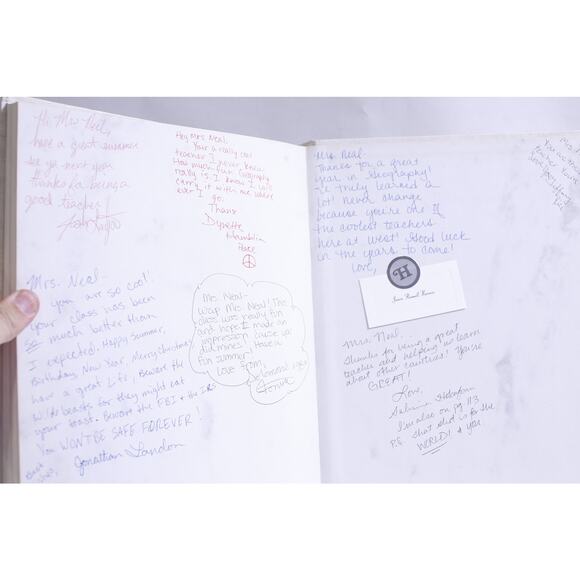 Hi Mrs Neal,
have a great summer
see ya next year
Thanks for being a
good teacher
Hey Mrs. Neal,
Your a really cool
teacher I never knew
How much fun Geography
really is I know I will
carry it with me where
ever I
go.
Thanx
Dynette
Hamblin
Peace
Mrs. Neal-
you are so cool!
your class has been
so much better than
I expected. Happy Summer,
Birthday, New Year, Merry Christmas
have a great Life, Beware the
wildebeasts for they might eat
your toast. Beware the FBI & the IRS
You WON'T BE SAFE FOREVER!
Jonathan Landon
Ms. Neal-
Wazup Mrs. Neal! This
class was really fun
and hope I made an
impression 'cause ya'
did mines! Have a
fun Summer!
Love From,
Mrs. Neal-
Thanks for a great
year in Geography!
I've truly learned a
lot! Never change
because you're one of
the coolest teachers
here at West! Good luck
in the years to come!
Love,
H
Mrs. Neal,
Thanks for being a great
teacher and helping us learn
about other countries! You're
GREAT!
Love,
Sabrina
I'm also on pg 113
P.S. that shot is for the
WORLD! & you